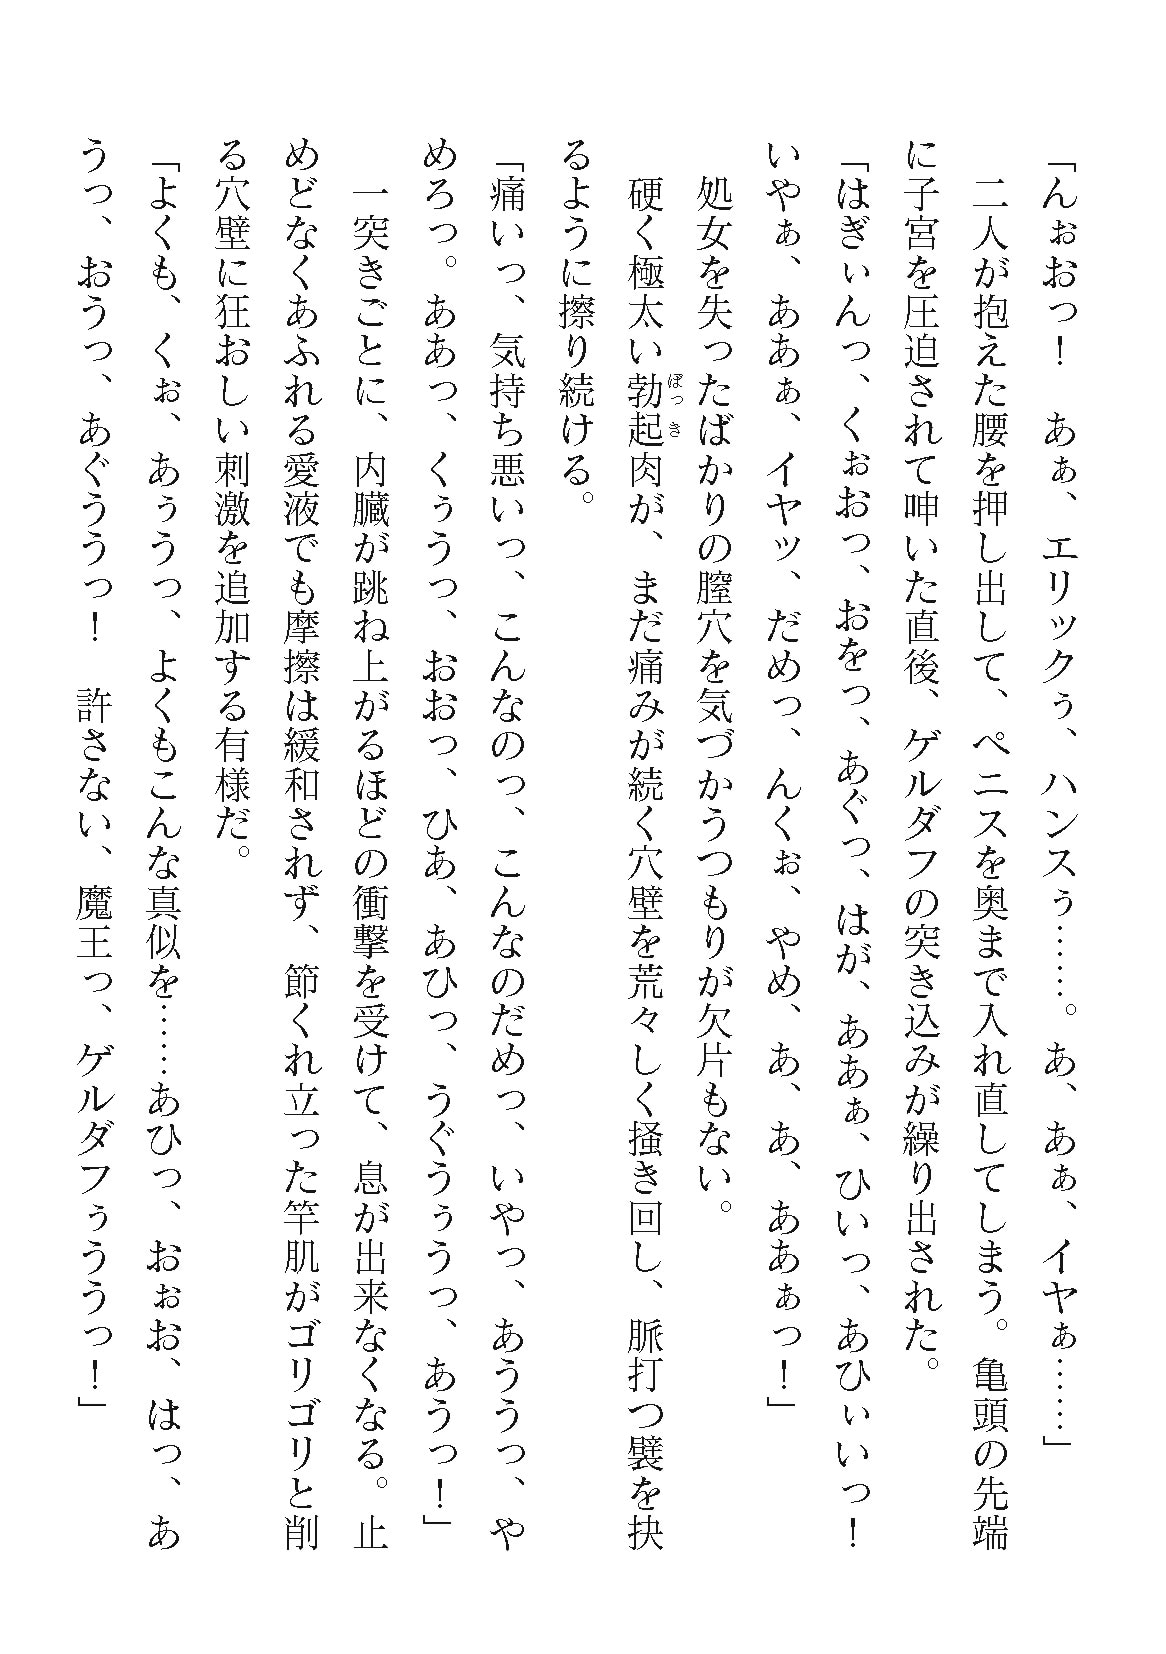 「んぉおっ！　あぁ、エリックぅ、ハンスぅ……。あ、あぁ、イヤぁ……」
二人が抱えた腰を押し出して、ペニスを奥まで入れ直してしまう。亀頭の先端
に子宮を圧迫されて呻いた直後、ゲルダフの突き込みが繰り出された。
「はぎぃんっ、くぉおっ、おをっ、あぐっ、はが、ああぁ、ひいっ、あひぃいっ！
いやぁ、ああぁ、イヤッ、だめっ、んくぉ、やめ、あ、あ、ああぁっ！」
処女を失ったばかりの膣穴を気づかうつもりが欠片もない。
硬く極太い勃起肉が、まだ痛みが続く穴壁を荒々しく掻き回し、脈打つ襞を抉
るように擦り続ける。
「痛いっ、気持ち悪いっ、こんなのっ、こんなのだめっ、いやっ、あううっ、や
めろっ。ああっ、くぅうっ、おおっ、ひあ、あひっ、うぐうぅうっ、あうっ！」
一突きごとに、内臓が跳ね上がるほどの衝撃を受けて、息が出来なくなる。止
めどなくあふれる愛液でも摩擦は緩和されず、節くれ立った竿肌がゴリゴリと削
る穴壁に狂おしい刺激を追加する有様だ。
「よくも、くぉ、あぅうっ、よくもこんな真似を……あひっ、おぉお、はっ、あ
うっ、おうっ、あぐううっ！　許さない、魔王っ、ゲルダフぅううっ！」
ぼっき